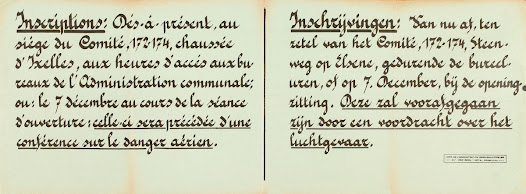 Inscriptions: Dés-à-présent, au
siége du Comité, 172-174, chaussée
d'Ixelles, aux heures d'accès aux bu
reaux de l'Administration communale;
ou: le 7 décembre au cours de la séance
d'ouverture; celle-ci sera précédée d'une
conférence sur le danger aérien.
Inschrijvingen: Van nu af, ten
zetel van het Comité, 172-174, Steen-
weg op Elsene, gedurende de bureel-
uren, of op 7. December, bij de opening-
zitting. Deze zal voorafgegaan
zijn door een voordracht over het
luchtgevaar.